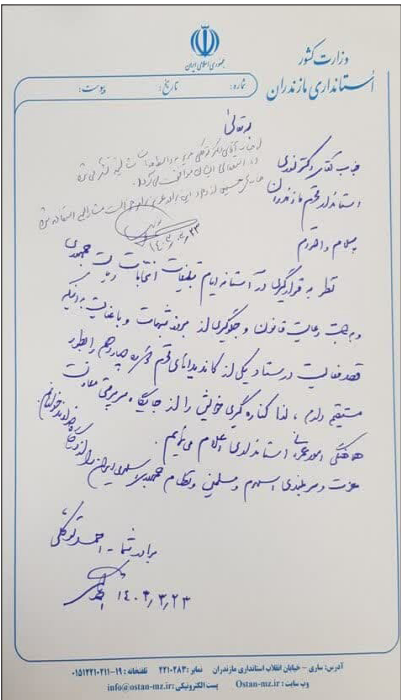 جمهوری اسلامی ایران
وزارت کشور
استانداری مازندران
شماره: تاریخ: پیوست:
بسمه تعالی
جناب آقای دکتر
استاندار محترم مازندران
با سلام و احترام
نظر به قرارگیری در آستانه ایام تبلیغات انتخابات ریاست جمهوری
و به جهت رعایت قانون و جلوگیری از بروز شبهات و با عنایت به اینکه
قصد فعالیت در ستاد یکی از کاندیداهای محترم دوره چهاردهم را بطور
مستقیم دارم، لذا کناره گیری خویش را از جایگاه سرپرستی معاونت
هماهنگی امور عمرانی استانداری اعلام می نمایم.
عزت و سربلندی اسلام و مسلمین و نظام جمهوری اسلامی ایران را از درگاه خداوند خواهانم.
برادر شما - احمد توکلی
۱۴۰۳,۳,۲۳
آدرس: ساری - خیابان انقلاب استانداری مازندران نمابر: ۲۲۱۰۲۸۳ تلفنخانه: ۱۹-۰۱۵۱۲۲۱۰۲۱۱
وب سایت: Ostan-mz.ir پست الکترونیکی: info@ostan-mz.ir